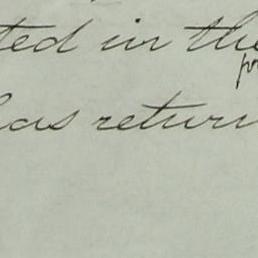 ted in the
has return